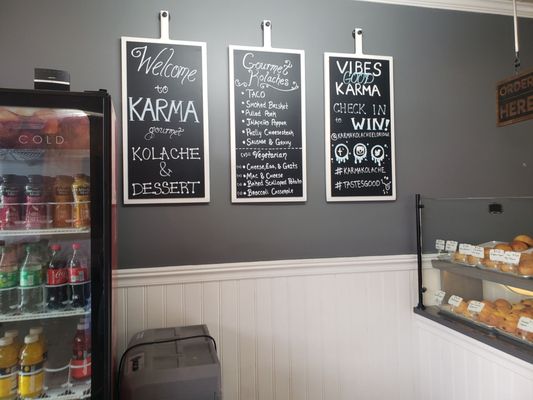 Welcome
to
KARMA
gourmet
KOLACHE
&
DESSERT
Gourmet
Kolaches
TACO
Smoked Brisket
Pulled Pork
Jalapeno Popper
Philly Cheesesteak
Sausage & Gravy
Vegetarian
Cheese, Egg, & Grits
Mac & Cheese
Baked Scalloped Potato
Broccoli Casserole
VIBES
Good
KARMA
CHECK IN
to WIN!
#KARMAKOLACHE
#TASTESGOOD
ORDER
HERE
COLD